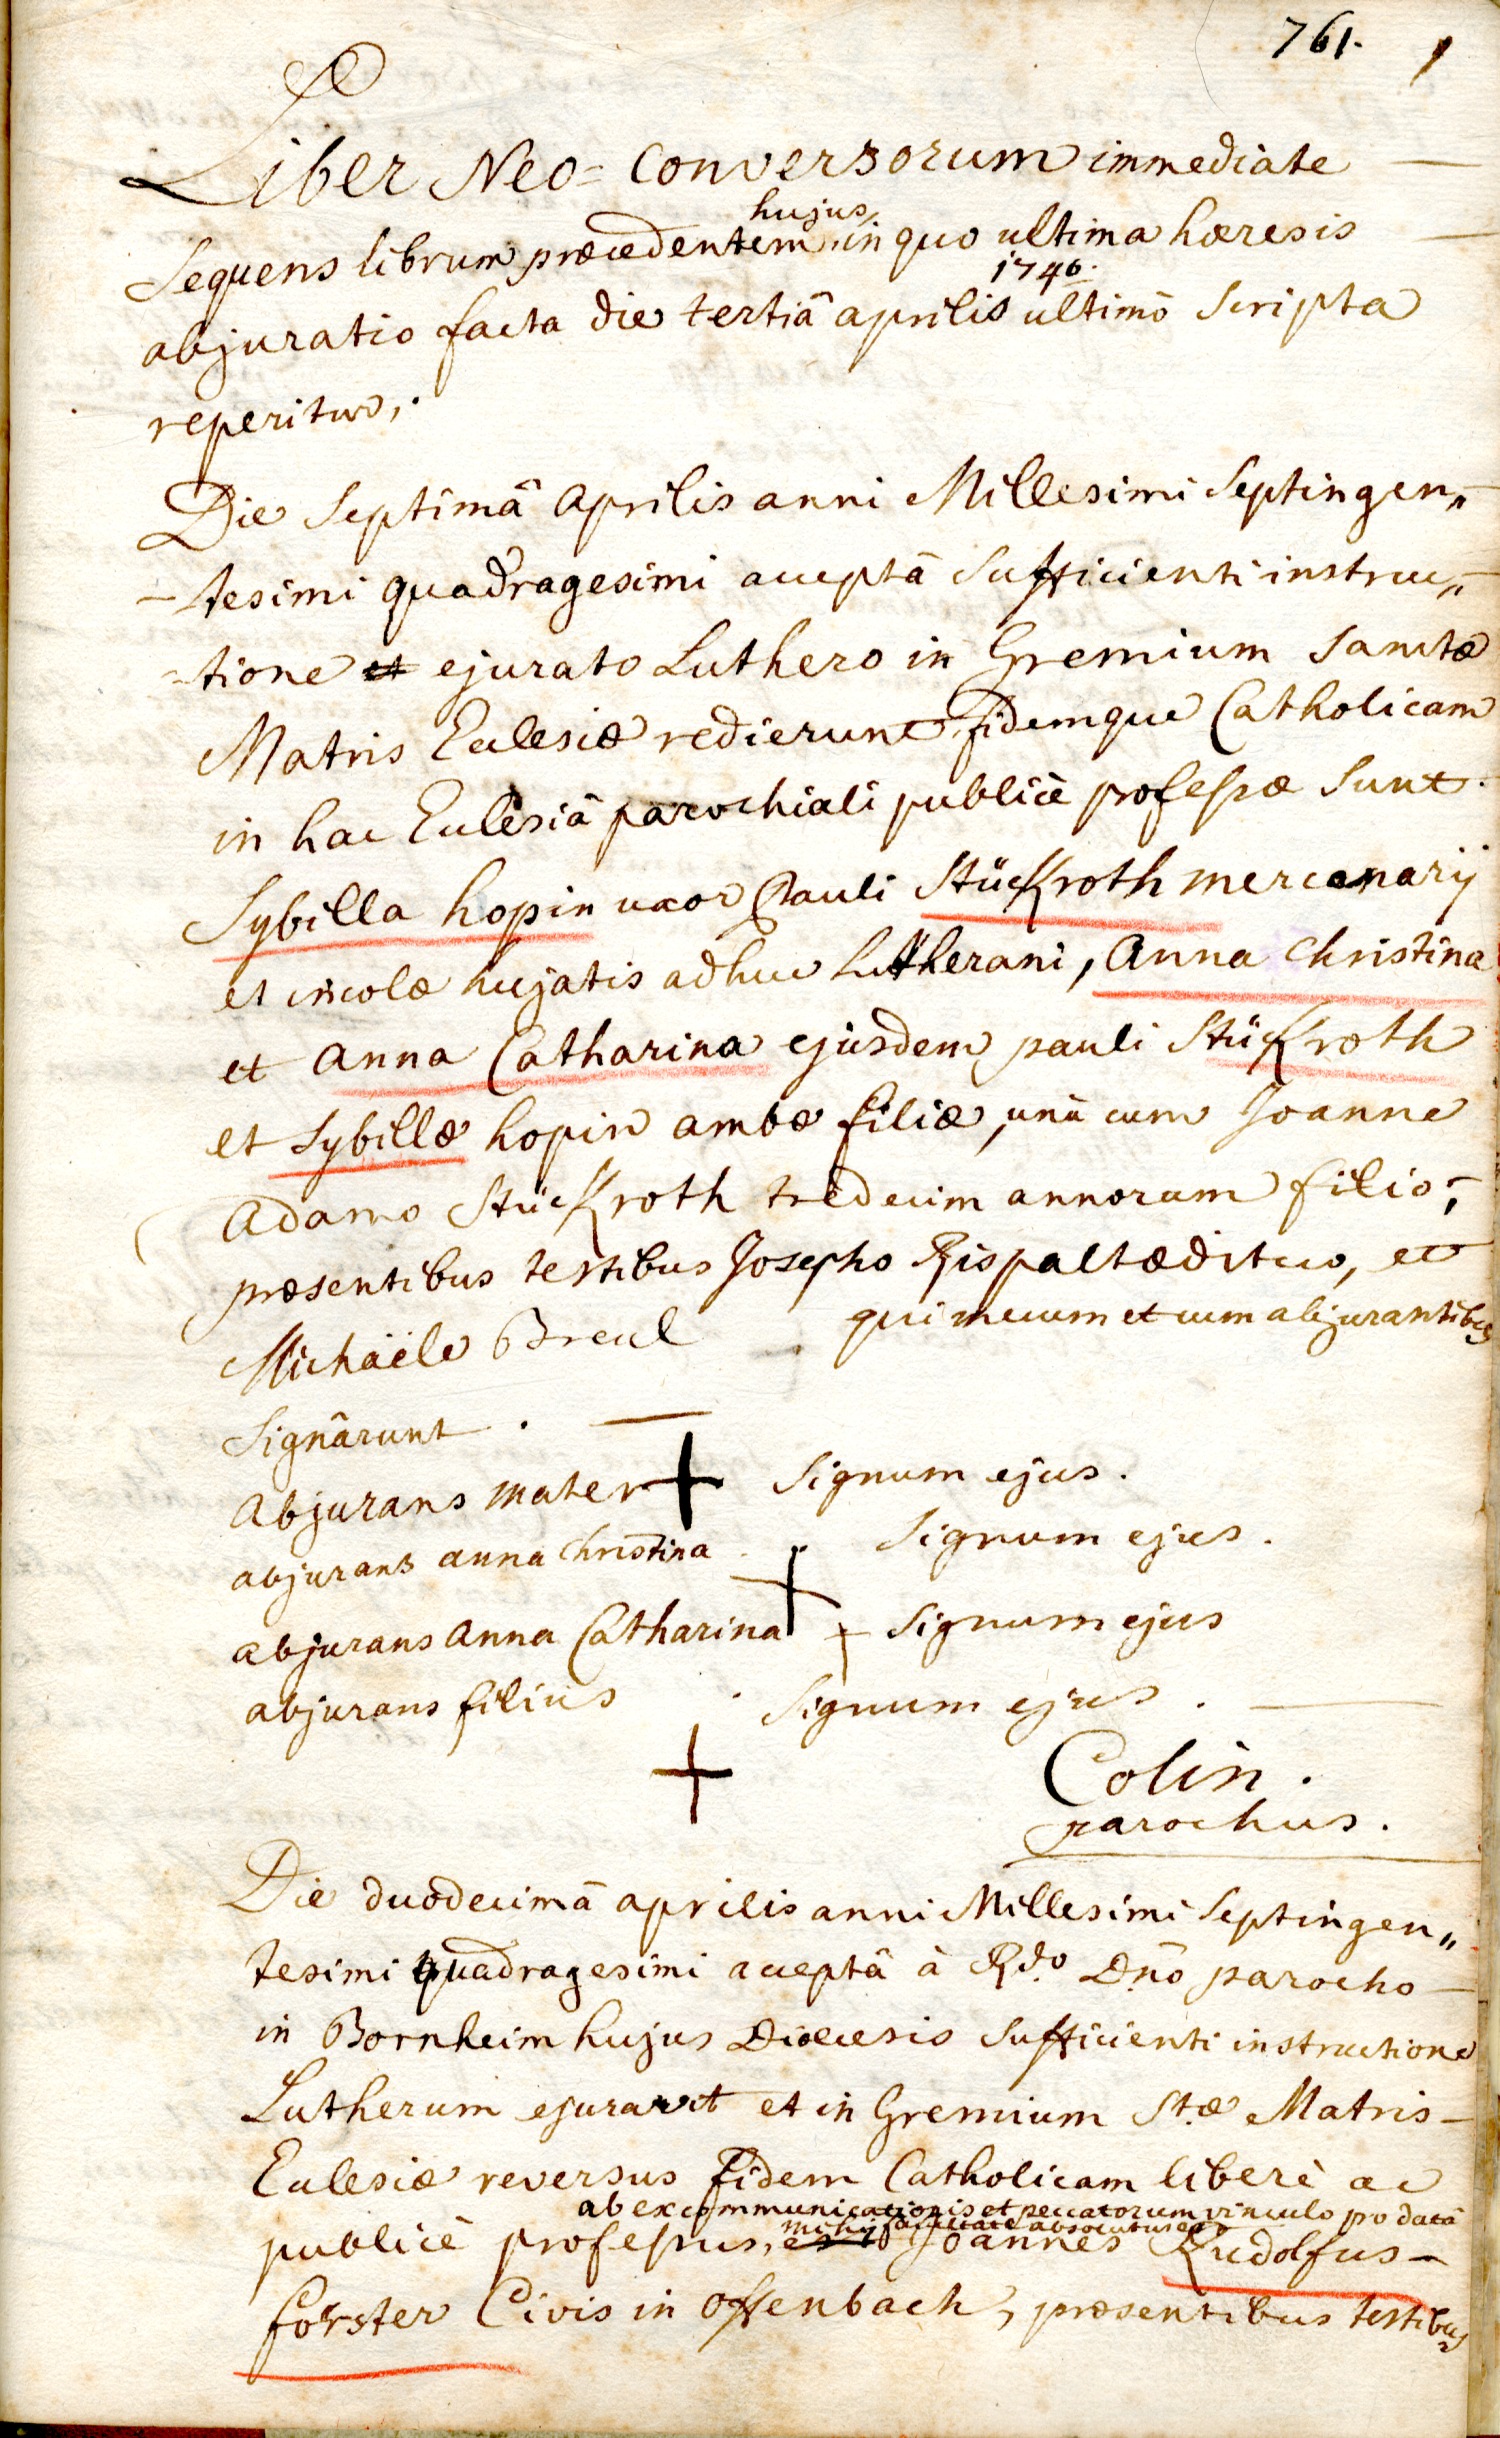 761.
Liber Neo= Conversorum immediate
hujus
Sequens librum præcedentem in quo ultima hæresis
1746.
abjuratio facta die tertiâ aprilis ultimô Scripta
reperitur.
Die Septimâ Aprilis anni Millesimi Septingen„
-tesimi quadragesimi acceptâ Sufficienti instruc„
-tione et ejurato Luthero in Gremium Sanctæ
Matris Ecclesiæ redierunt fidemque Catholicam
in hac Ecclesiâ parochiali publicè professæ Sunt.
Sybilla hopin uxor Pauli Stückroth mercenarij
et incolæ hujatis adhuc Lutherani, Anna Christina
et Anna Catharina ejusdem pauli Stückroth
et Sybillæ hopin ambæ filiæ, unà cum Joanne
Adamo Stückroth tredecim annorum filio,
præsentibus testibus Josepho Rispalt ædituo, et
Michaële Breul qui mecum et cum abjurantibus
Signârunt.
Abjurans mater + Signum ejus.
abjurans anna Christina + Signum ejus.
abjurans Anna Catharina + Signum ejus
abjurans filius . Signum ejus.
+
Colin.
parochus.
Die duodecimâ aprilis anni Millesimi Septingen„
tesimi quadragesimi acceptâ à Rdo. Dnō parocho
in Bornheim hujus Diœcesis Sufficienti instructione
Lutherum ejuravit et in Gremium Stæ Matris
Ecclesiæ reversus Fidem Catholicam liberè ac
ab excommunicationis et peccatorum vinculo pro datâ
mihi facultate absolutus
publicè professus, est Joannes Rudolfus
förster Civis in Offenbach, præsentibus testibus